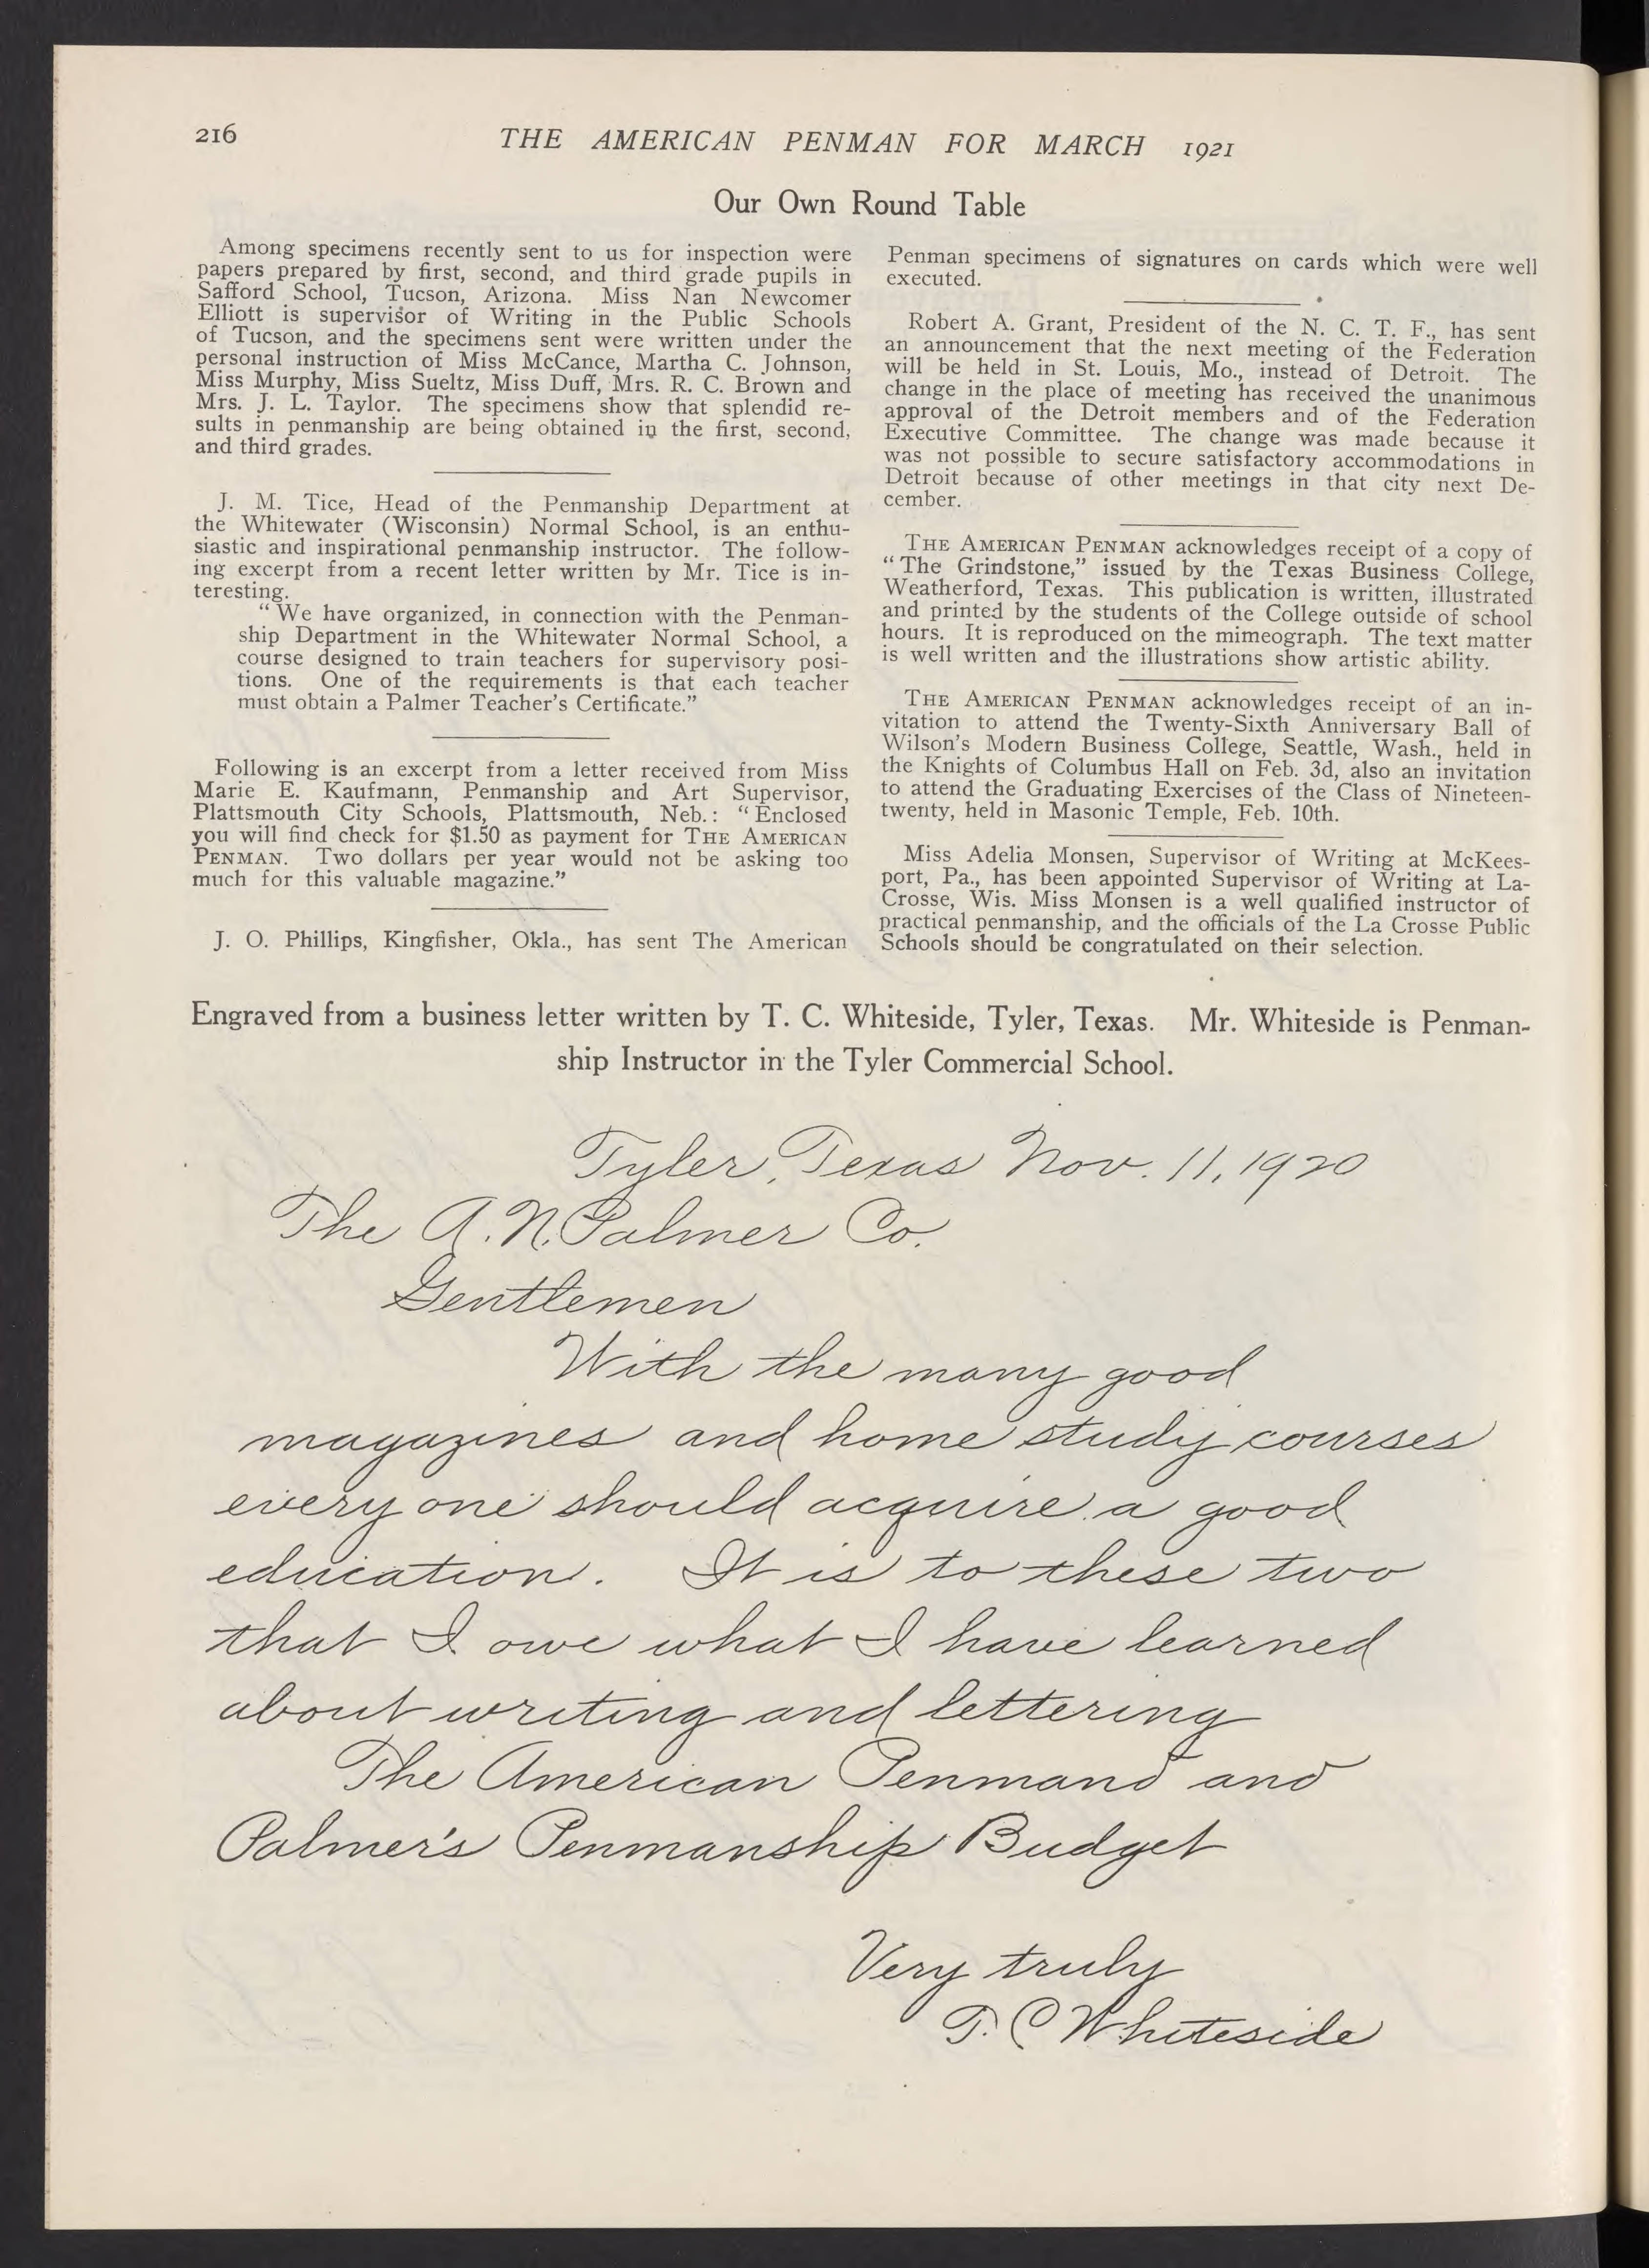 216
THE AMERICAN PENMAN FOR MARCH 1921
Our Own Round Table
Among specimens recently sent to us for inspection were
papers prepared by first, second, and third grade pupils in
Safford School, Tucson, Arizona. Miss Nan Newcomer
Elliott is supervisor of Writing in the Public Schools
of Tucson, and the specimens sent were written under the
personal instruction of Miss McCance, Martha C. Johnson,
Miss Murphy, Miss Sueltz, Miss Duff, Mrs. R. C. Brown and
Mrs. J. L. Taylor. The specimens show that splendid re-
sults in penmanship are being obtained in the first, second,
and third grades.
J. M. Tice, Head of the Penmanship Department at
the Whitewater (Wisconsin) Normal School, is an enthu-
siastic and inspirational penmanship instructor. The follow-
ing excerpt from a recent letter written by Mr. Tice is in-
teresting.
"We have organized, in connection with the Penman-
ship Department in the Whitewater Normal School, a
course designed to train teachers for supervisory posi-
tions. One of the requirements is that each teacher
must obtain a Palmer Teacher's Certificate."
Following is an excerpt from a letter received from Miss
Marie E. Kaufmann, Penmanship and Art Supervisor,
Plattsmouth City Schools, Plattsmouth, Neb.: "Enclosed
you will find check for $1.50 as payment for THE AMERICAN
PENMAN. Two dollars per year would not be asking too
much for this valuable magazine."
J. O. Phillips, Kingfisher, Okla., has sent The American
Penman specimens of signatures on cards which were well
executed.
Robert A. Grant, President of the N. C. T. F., has sent
an announcement that the next meeting of the Federation
will be held in St. Louis, Mo., instead of Detroit. The
change in the place of meeting has received the unanimous
approval of the Detroit members and of the Federation
Executive Committee. The change was made because it
was not possible to secure satisfactory accommodations in
Detroit because of other meetings in that city next De-
cember.
THE AMERICAN PENMAN acknowledges receipt of a copy of
"The Grindstone," issued by the Texas Business College,
Weatherford, Texas. This publication is written, illustrated
and printed by the students of the College outside of school
hours. It is reproduced on the mimeograph. The text matter
is well written and the illustrations show artistic ability.
THE AMERICAN PENMAN acknowledges receipt of an in-
vitation to attend the Twenty-Sixth Anniversary Ball of
Wilson's Modern Business College, Seattle, Wash., held in
the Knights of Columbus Hall on Feb. 3d, also an invitation
to attend the Graduating Exercises of the Class of Nineteen-
twenty, held in Masonic Temple, Feb. 10th.
Miss Adelia Monsen, Supervisor of Writing at McKees-
port, Pa., has been appointed Supervisor of Writing at La-
Crosse, Wis. Miss Monsen is a well qualified instructor of
practical penmanship, and the officials of the La Crosse Public
Schools should be congratulated on their selection.
Engraved from a business letter written by T. C. Whiteside, Tyler, Texas. Mr. Whiteside is Penman-
ship Instructor in the Tyler Commercial School.
Tyler, Texas Nov. 11, 1920
The A. N. Palmer Co.
Gentlemen
With the many good
magazines and home study courses
every one should acquire a good
education. It is to these two
that I owe what I have learned
about writing and lettering
The American Penman and
Palmer's Penmanship Budget
Very truly
T. C Whiteside